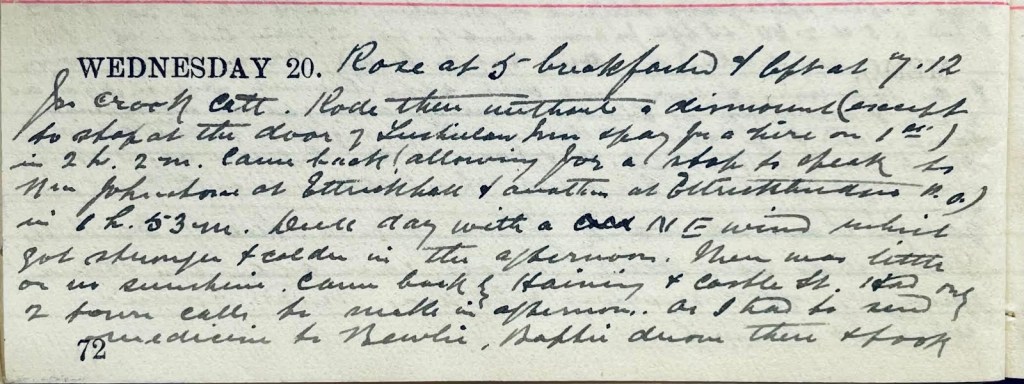 WEDNESDAY 20. Rose at 5 breakfasted & left at 7.12
for Crook Cott. Rode there without a dismount (except
to stop at the door of Tushielaw Inn & pay for a hire on 1st)
in 2 h. 2 m. Came back (allowing for a stop to speak to
Wm Johnstone at Ettrickhall & another at Ettrickbridge P.O.)
in 1 h. 53 m. Dull day with a cold NE wind which
got stronger & colder in the afternoon. There was little
or no sunshine. Came back by Haining & Castle St. Had only
2 town calls to make in afternoon. As I had to send
medicine to Bewlie, drove there & took
72